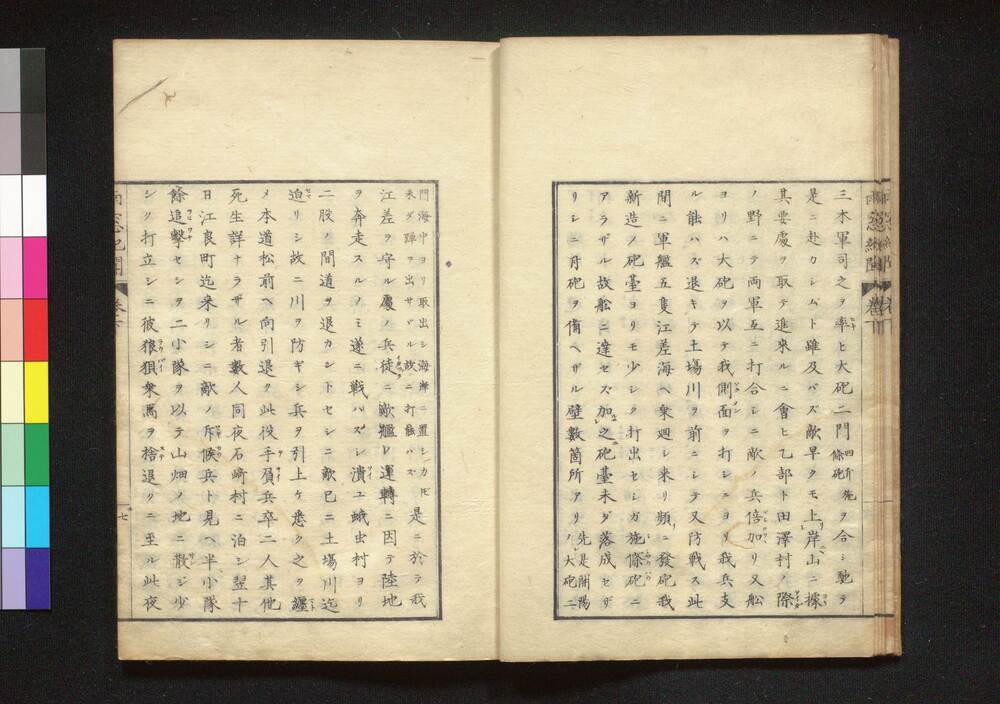 三木軍司之ヲ率ヒ大砲二門四斤施條砲ヲ合シ馳テ
是ニ赴カシムト雖及バズ敵早クモ上岸山ニ據
其要處ヲ取テ進來ルニ會ヒ乙部ト田澤村ノ際
ノ野ニテ両軍互ニ打合シニ敵ノ兵倍加リ又舩
ヨリハ大砲ヲ以テ我側面ヲ打シニヨリ我兵支
ル能ハズ退キテ土塲川ヲ前ニシテ又防戦ス此
間ニ軍艦五隻江差海ヘ乗廻シ来リ頻ニ發砲我
新造ノ砲臺ヨリモ少シク打出セシガ施條砲ニ
アラザル故舩ニ達セズ加之砲臺未ダ落成セザ
リシニ月砲ヲ備ヘザル壁數箇所アリ先是開陽ノ大砲二
門海中ヨリ取出シ海岸ニ置シカ𪜈
未ダ弾ヲ出サヾル故ニ打能ハズ是ニ於テ我
江差ヲ守ル處ノ兵徒ニ敵艦ノ運轉ニ因テ陸地
ヲ奔走スルノミ遂ニ戦ハズシ潰ユ蛾虫村ヨリ
二股ノ間道ヲ退カントセシニ敵已ニ土塲川迄
迫リシ故ニ川ヲ防ギシ兵ヲ引上ケ悉ク之ヲ纏
メ本道松前ヘ向引退ク此役手屓兵卒二人其他
死生詳ナラザル者數人同夜石﨑村ニ泊シ翌十
日江良町迄来リシニ敵ノ斥候兵ト見ヘ半小隊
餘追撃セシヲ二小隊ヲ以テ山畑ノ地ニ散ジ少
シク打立シニ彼狼狽乗馬ヲ捨退クニ至ル此夜
七